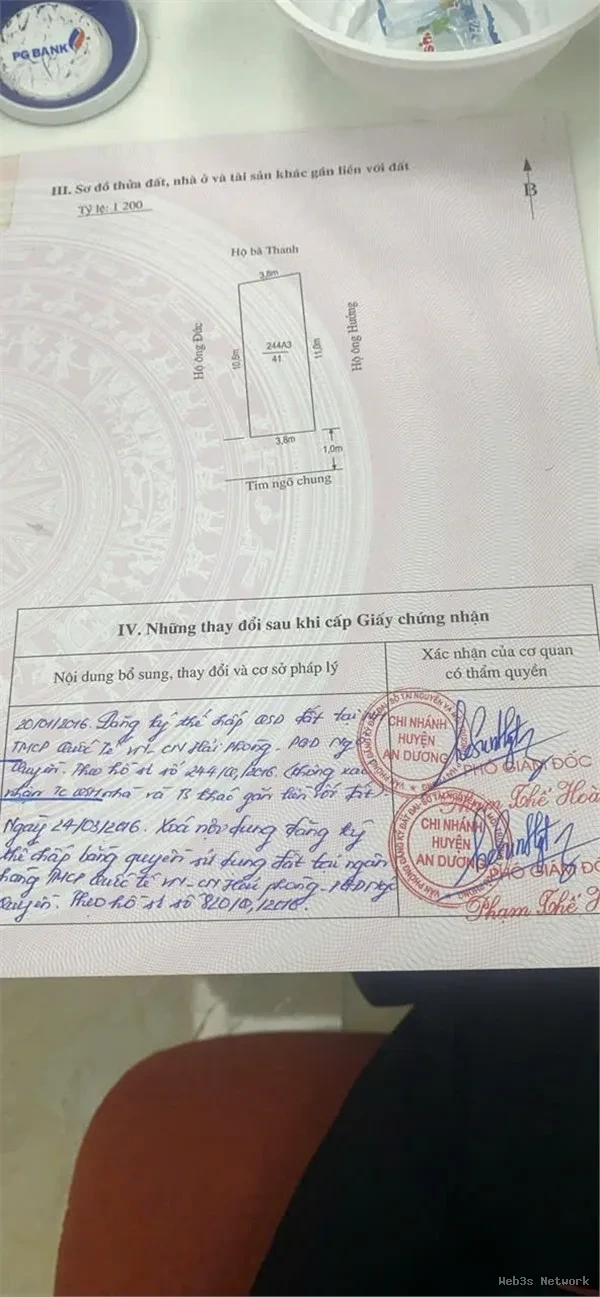 PG BANK
III. Sơ đồ thửa đất, nhà ở và tài sản khác gắn liền với đất
Tỷ lệ: 1 200
B
Hộ bà Thanh
3,8m
Hộ ông Đức
10,8m
244A3
41
11,0m
Hộ ông Hưởng
3,8m
1,0m
Tim ngõ chung
IV. Những thay đổi sau khi cấp Giấy chứng nhận
Nội dung bổ sung, thay đổi và cơ sở pháp lý
Xác nhận của cơ quan
có thẩm quyền
20/01/2016. Đăng ký thế chấp QSD đất tại
TMCP Quốc Tế VN-CN Hải Phòng- PGD Ngô
Quyền. Theo hồ sơ số 244 /2016. (không xác
nhận TC QSH nhà và TS khác gắn liền với đất)
CHI NHÁNH
HUYỆN
AN DƯƠNG
PHÓ GIÁM ĐỐC
Phạm Thế Hoà
Ngày 24/03/2016. Xoá nội dung đăng ký
thế chấp bằng quyền sử dụng đất tại ngân
hàng TMCP Quốc tế VN-CN Hải Phòng-PGD Ngô
Quyền. Theo hồ sơ số 820 /2016.
CHI NHÁNH
HUYỆN
AN DƯƠNG
PHÓ GIÁM ĐỐ
Phạm Thế H
Web3s Network